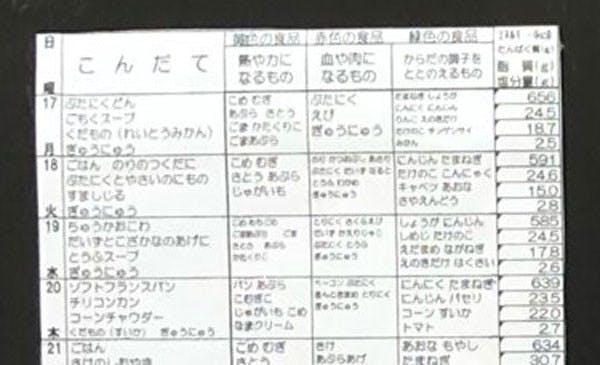 日 曜
こんだて
黄色の食品
熱や力に
なるもの
赤色の食品
血や肉に
なるもの
緑色の食品
からだの調子を
ととのえるもの
たんぱく質(g)
脂 質(g)
塩分量(g)
17 月
ぶたにくどん
ごもくスープ
くだもの(れいとうみかん)
ぎゅうにゅう
こめ むぎ
あぶら さとう
ごま かたくりこ
ごまあぶら
ぶたにく
えび
ぎゅうにゅう
たまねぎ しょうが
にんにく にんじん
りんご えのきだけ
たけのこ チンゲンサイ
みかん
656
24.5
18.7
2.5
18 火
ごはん のりのつくだに
ぶたにくとやさいのにもの
すましじる
ぎゅうにゅう
こめ むぎ
さとう あぶら
じゃがいも
のり かつおぶし あさり
ぶたにく だいず なると
とうふ わかめ
ぎゅうにゅう
にんじん たまねぎ
たけのこ こんにゃく
キャベツ あおな
さやえんどう
591
24.6
15.0
2.8
19 水
ちゅうかおこわ
だいずとこざかなのあげに
とうふスープ
ぎゅうにゅう
こめ もちごめ
ごまあぶら ごま
さとう あぶら
かたくりこ
とりにく さくらえび
だいず かえりじゃこ
ぶたにく とうふ
ぎゅうにゅう
しょうが にんじん
しめじ たけのこ
えだまめ ながねぎ
えのきだけ はくさい
585
24.5
17.8
2.6
20 木
ソフトフランスパン
チリコンカン
コーンチャウダー
くだもの(すいか) ぎゅうにゅう
パン あぶら
こむぎこ
じゃがいも こめ
なまクリーム
ベーコン ぶたにく
とりにく
ぎゅうにゅう
にんにく たまねぎ
にんじん パセリ
コーン すいか
トマト
639
23.5
22.0
2.7
21
ごはん
さけのしおやき
こめ むぎ
さとう
さけ
あぶらあげ
あおな もやし
たまねぎ
634
30.7